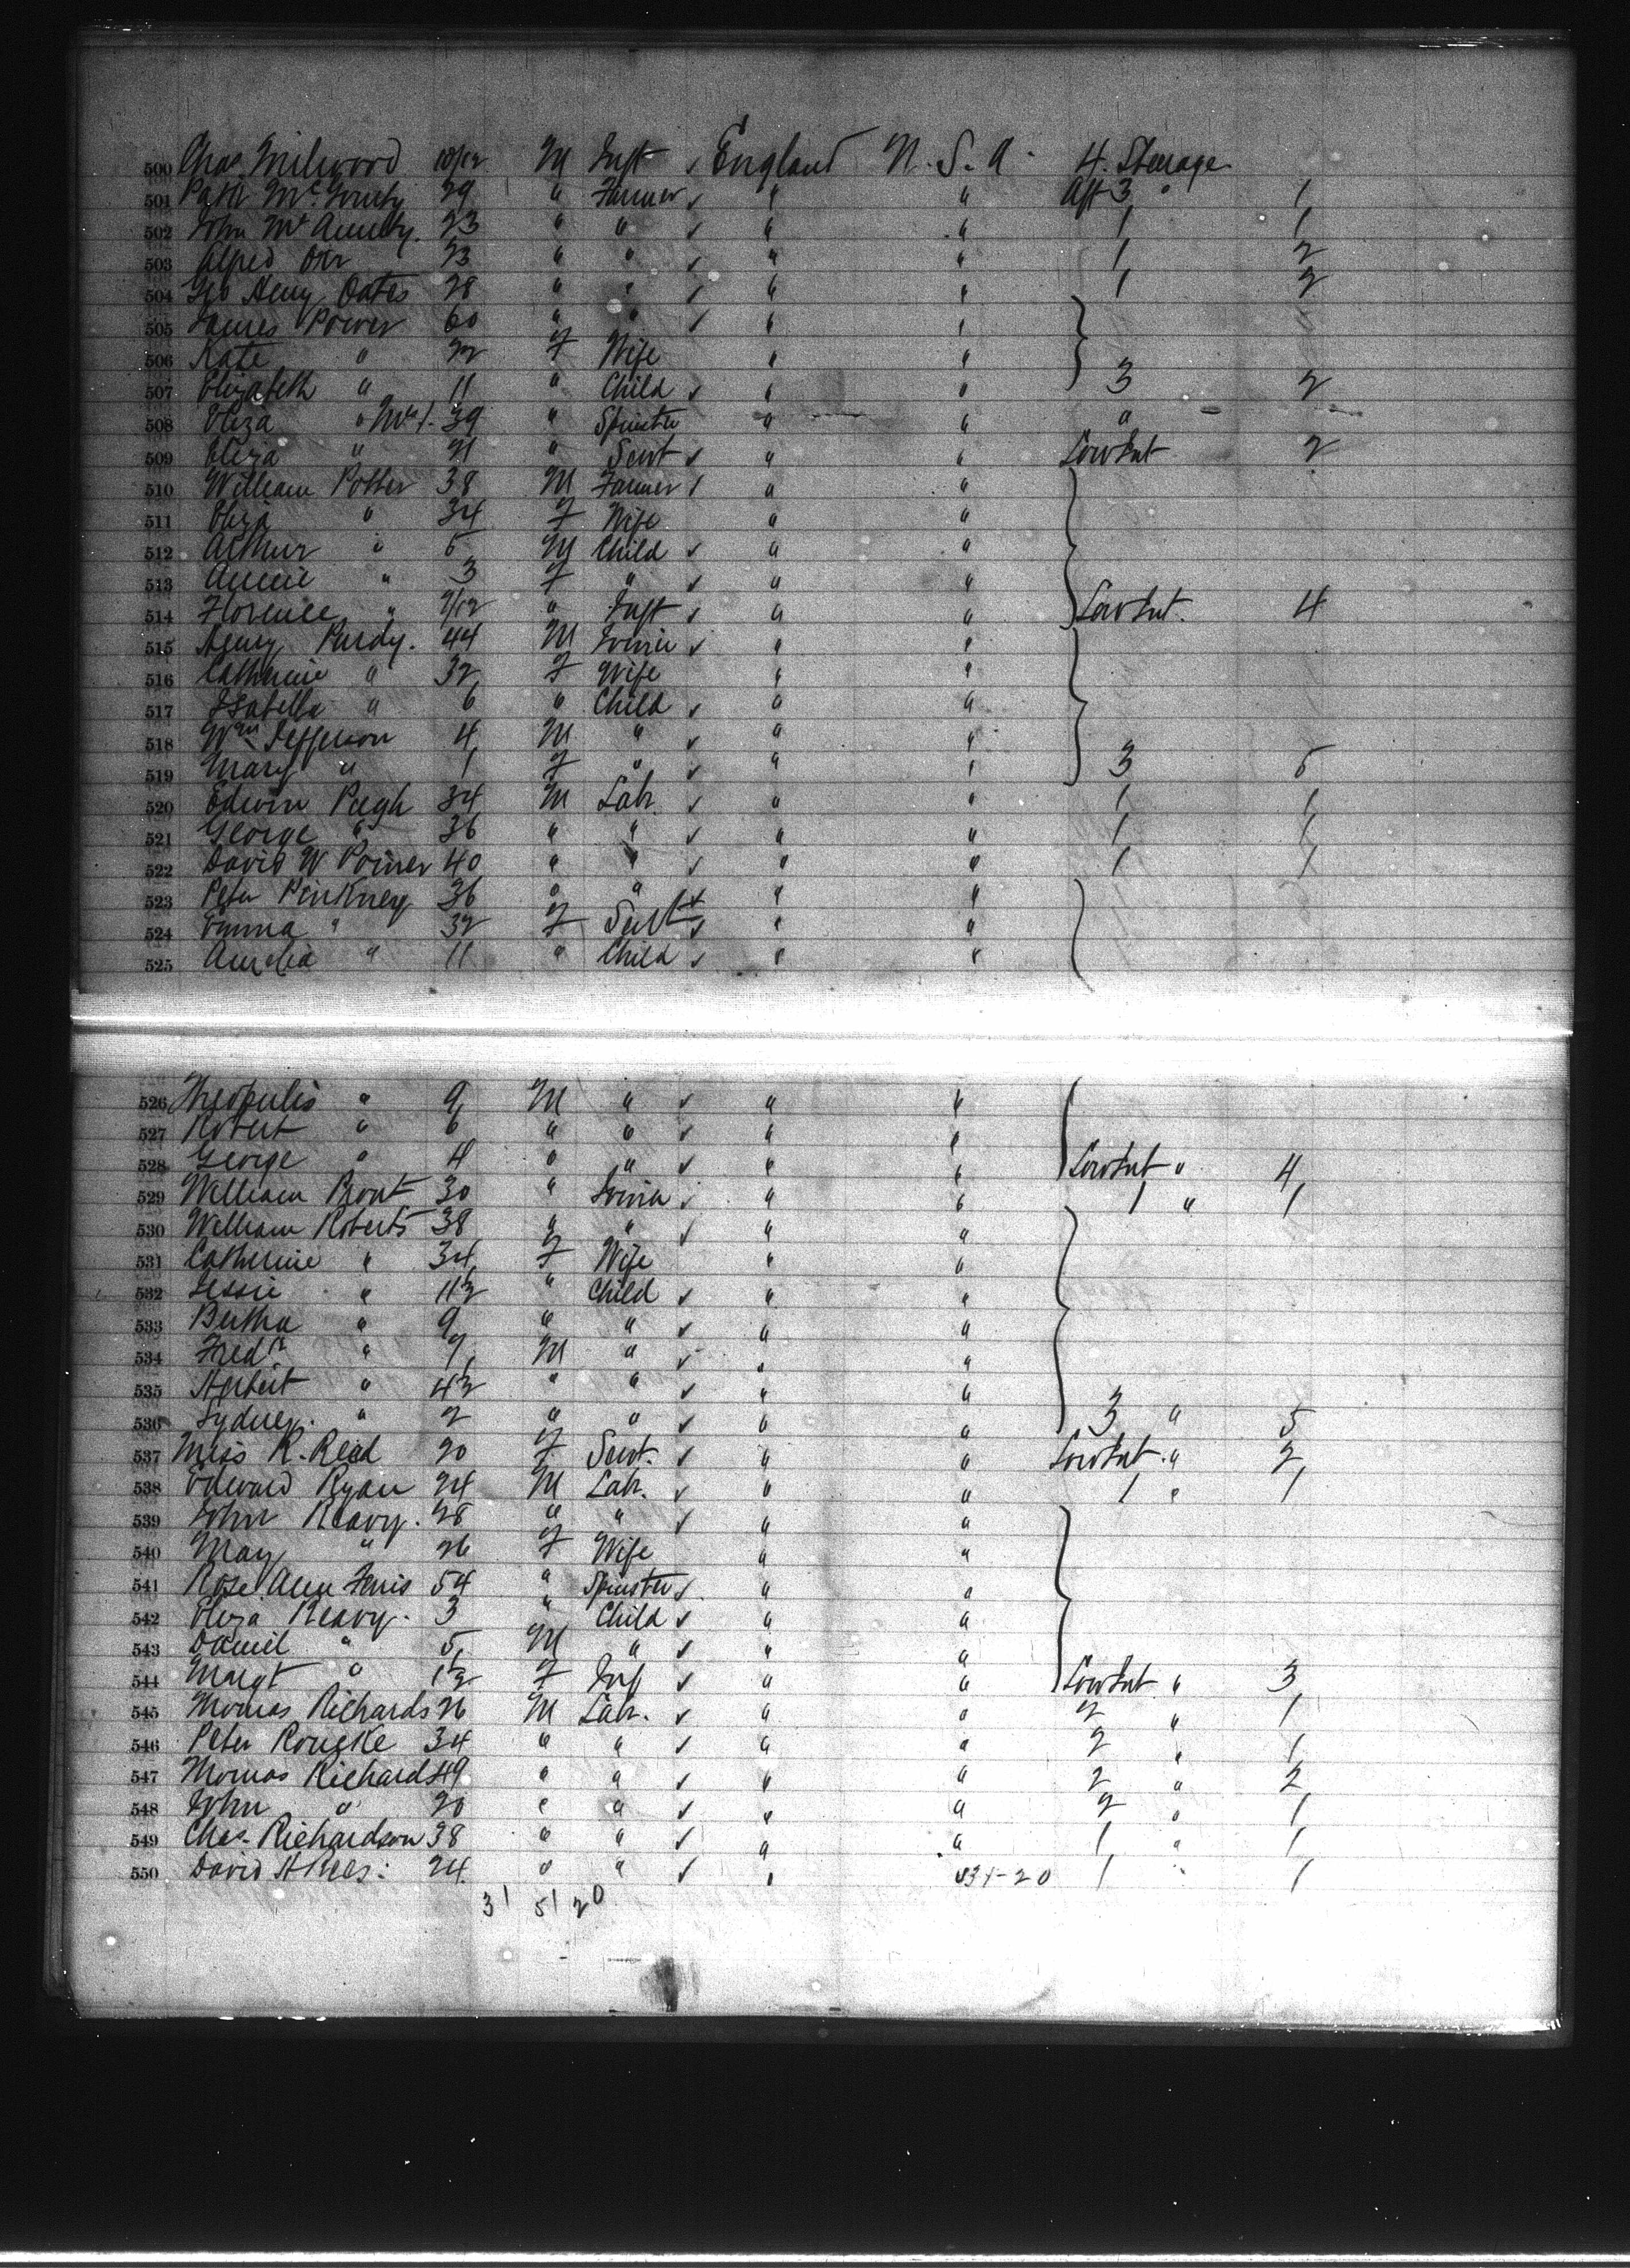 500 Chas. Milwood 10/12 M Inft ✓ England U. S. A. 4. Steerage
501 Patk Mc 29 " Farmer ✓ " " Aft 3 " 1
502 John Mc 23 " " ✓ " " 1 1
503 Alfred Orr 23 " " ✓ " " 1 2
504 Geo Henry Oates 28 " " ✓ " " 1 2
505 James Power 60 " " ✓ " "
506 Kate " 22 F Wife " "
507 Elizabeth " 11 " Child ✓ " " 3 2
508 Eliza " 39 " Spinster " " "
509 Eliza " 21 " Servt ✓ " " Low Int 2
510 William Potter 38 M Farmer ✓ " "
511 Eliza " 34 F Wife " "
512 Arthur " 5 M Child ✓ " "
513 Annie " 3 F " ✓ " "
514 Florence " /12 " Inft ✓ " " Low Int. 4
515 Henry Purdy. 44 M ✓ " "
516 Catherine " 32 F Wife " "
517 Isabella " 6 " Child ✓ " "
518 Wm Jefferson 4 M " ✓ " "
519 Mary " 1 F " ✓ " " 3 5
520 Edwin Pugh 34 M Labr. ✓ " " 1 1
521 George " 36 " " ✓ " " 1 1
522 David W Poiner 40 " " ✓ " " 1 1
523 Peter Pinkney 36 " " " "
524 Emma " 32 F ✓ " "
525 Amelia " 11 " Child ✓ " "
526 Theopulis " 9 M " ✓ " "
527 Robert " 6 " " ✓ " "
528 George " 4 " " ✓ " " Low Int " 4
529 William Prout 30 " ✓ " " 1 " 1
530 William Roberts 38 " " ✓ " "
531 Catherine " 34 F Wife " "
532 Jessie " 11½ " Child ✓ " "
533 Bertha " 9 " " ✓ " "
534 Fredk " 7 M " ✓ " "
535 Herbert " 4½ " " ✓ " "
536 Sydney. " 2 " " ✓ " " 3 " 5
537 Miss R. Reid 20 F Servt. ✓ " " Low Int. " 2
538 Edward Ryan 24 M Labr. ✓ " " 1 " 1
539 John Reavy. 28 " " ✓ " "
540 May " 26 F Wife " "
541 Rose Ann Ferris 54 " Spinster ✓ " "
542 Eliza Reavy. 3 " Child ✓ " "
543 Daniel " 5 M " ✓ " "
544 Margt " 1½ F Inf ✓ " " Low Int " 3
545 Thomas Richards 26 M Labr. ✓ " " 2 " 1
546 Peter Rourke 34 " " ✓ " " 2 " 1
547 Thomas Richards 49 " " ✓ " " 2 " 2
548 John " 20 " " ✓ " " 2 " 1
549 Chas. Richardson 38 " " ✓ " " 1 " 1
550 David H Rees. 24 " " ✓ " 1 " 1
31 51 20